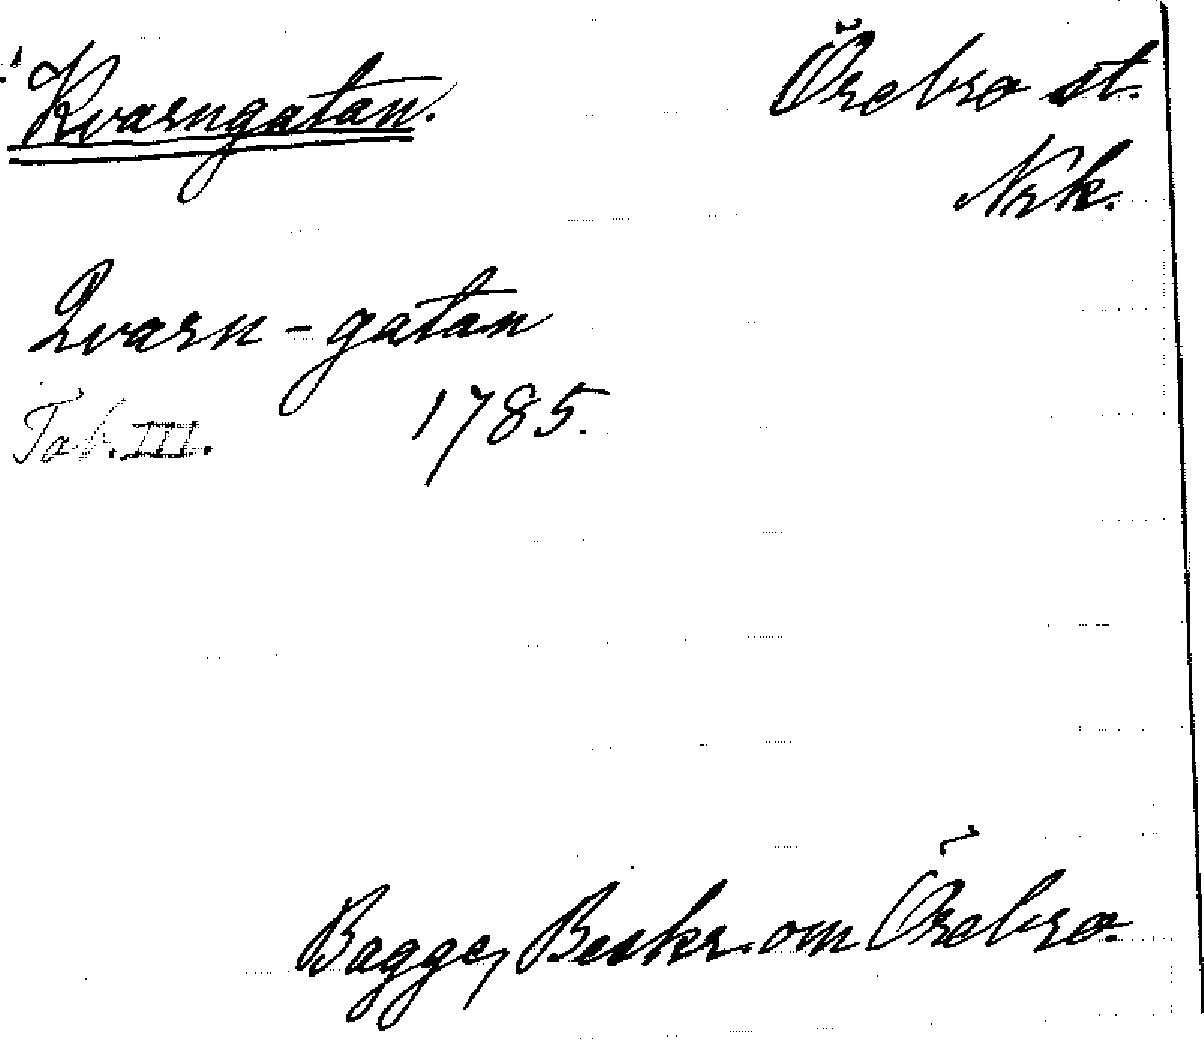 Kvarngatan.
Örebro st.
Nrk.
Qvarn-gatan
Tab. III. 1785.
Bagge, Beskr. om Örebro.